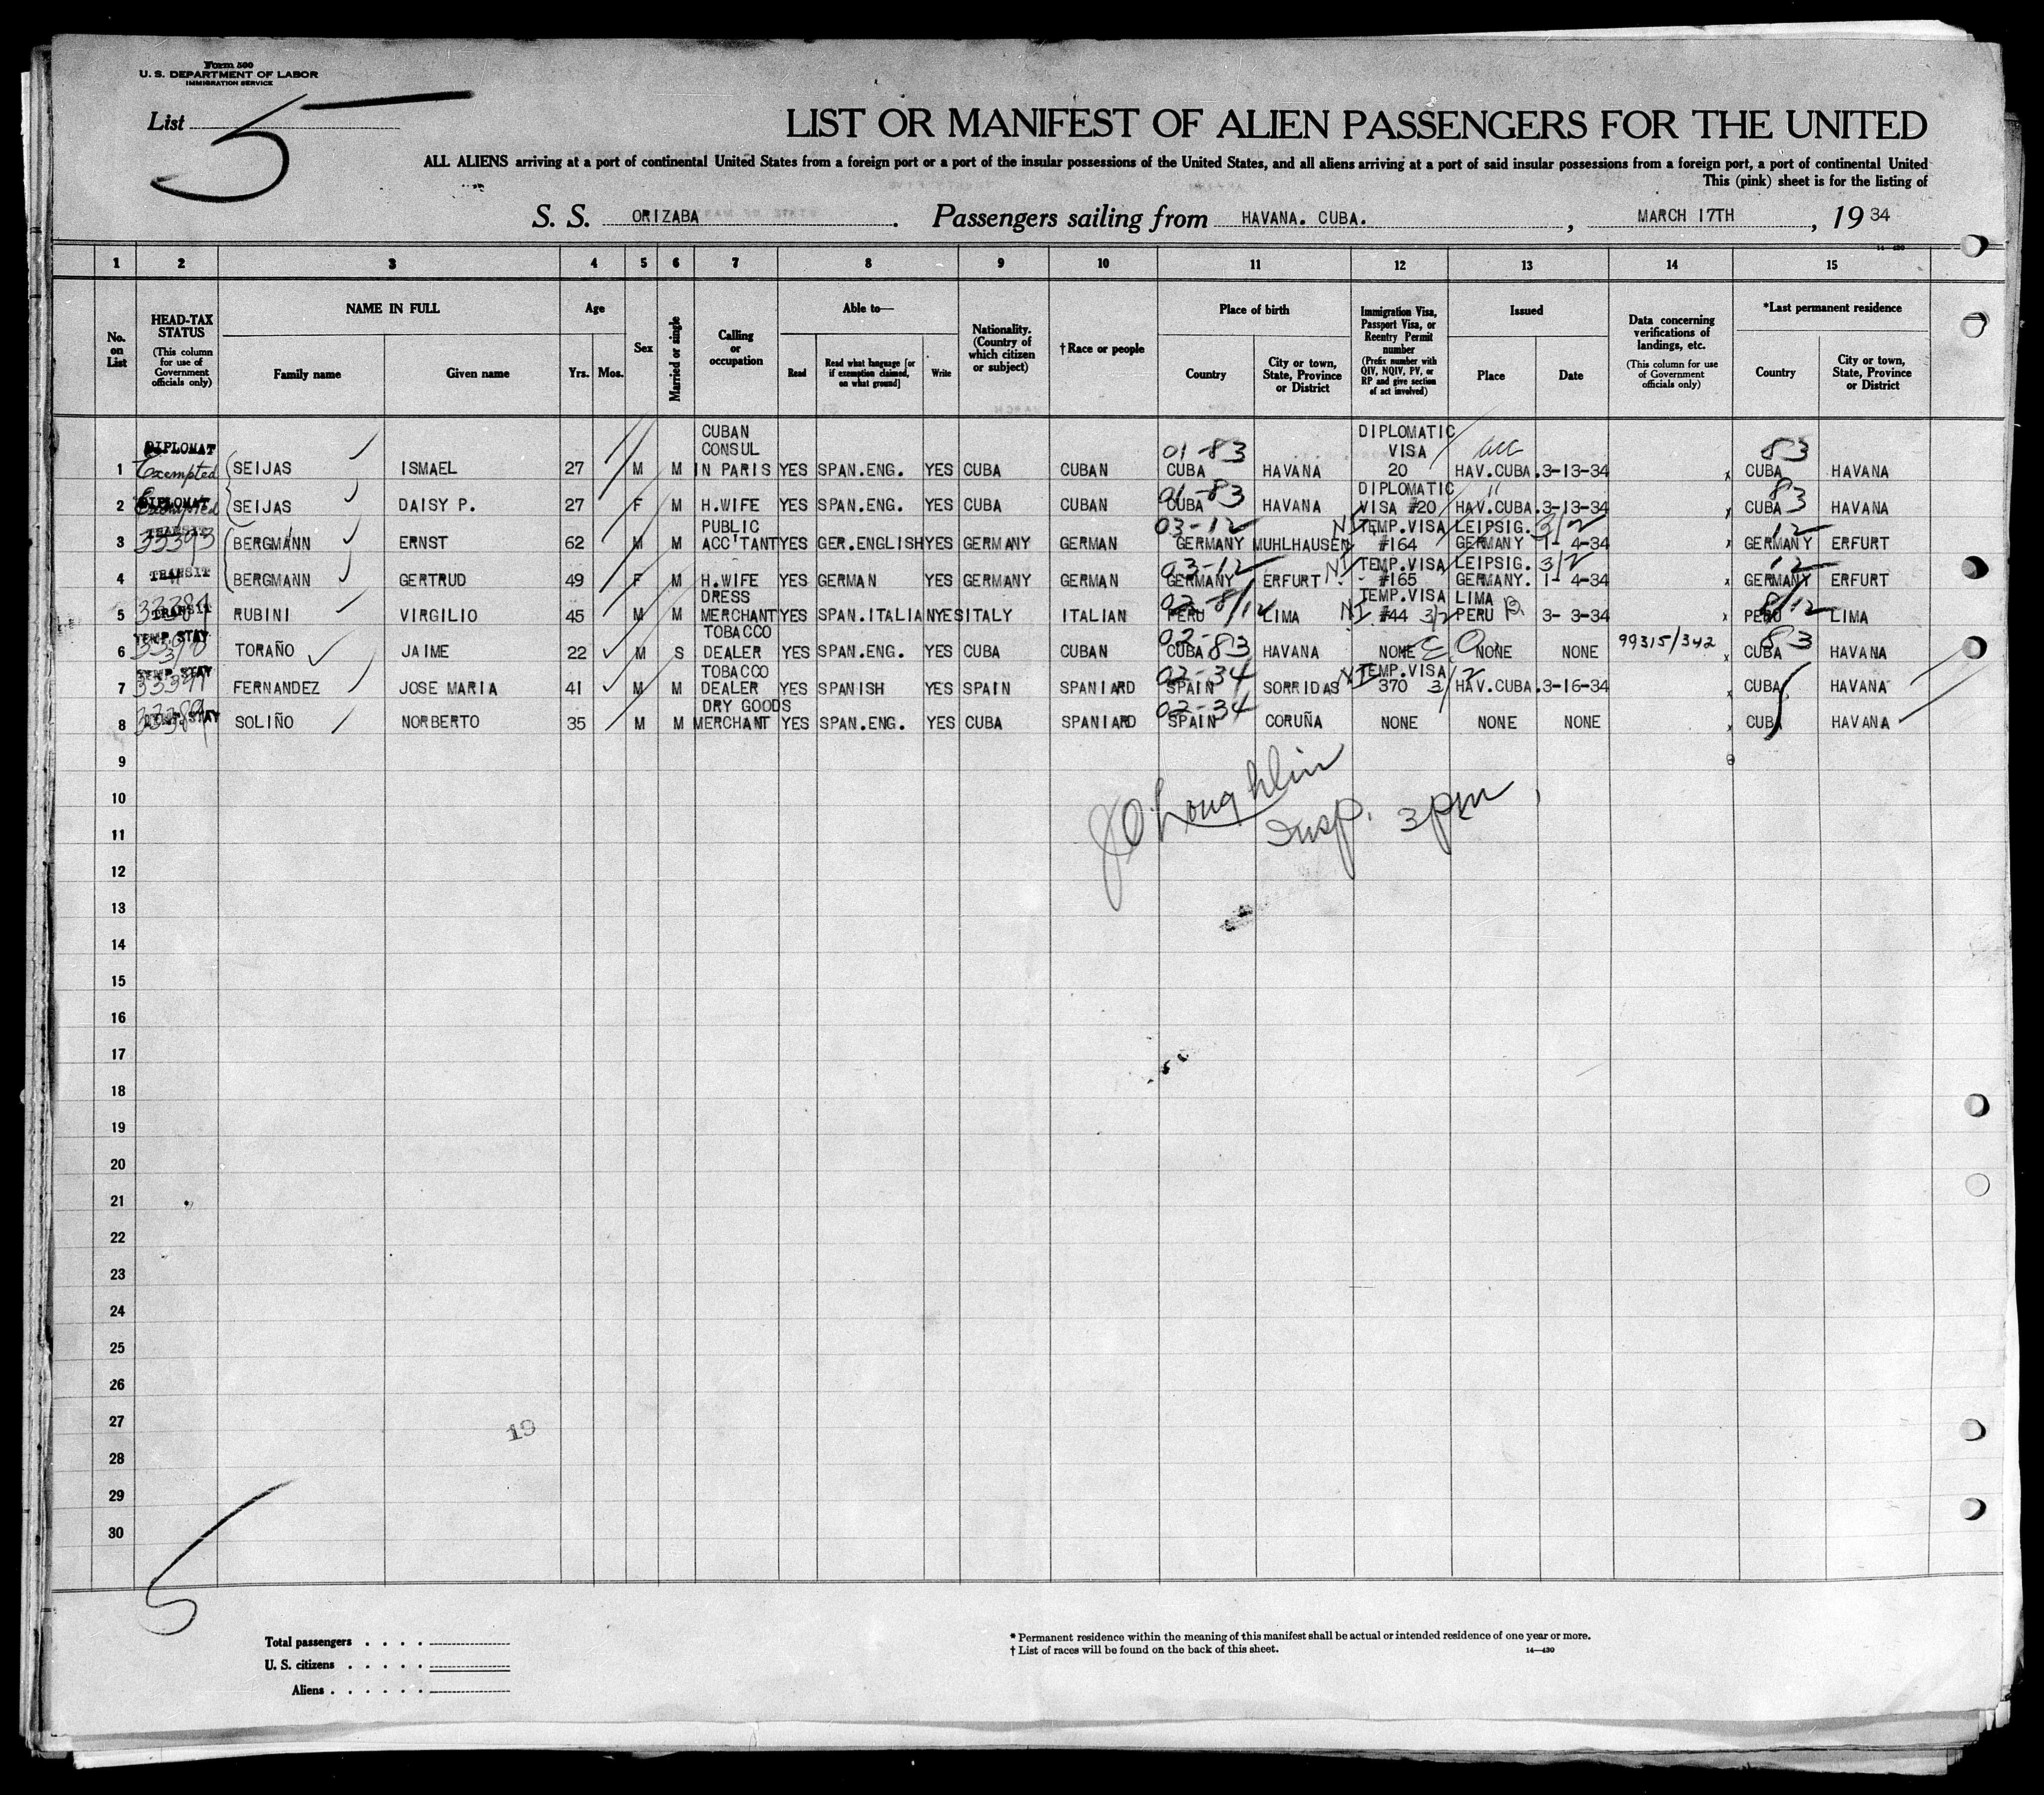 Form 500
U. S. DEPARTMENT OF LABOR
IMMIGRATION SERVICE
List 5
LIST OR MANIFEST OF ALIEN PASSENGERS FOR THE UNITED
ALL ALIENS arriving at a port of continental United States from a foreign port or a port of the insular possessions of the United States, and all aliens arriving at a port of said insular possessions from a foreign port, a port of continental United
This (pink) sheet is for the listing of
S. S. ORIZABA. Passengers sailing from HAVANA. CUBA. , MARCH 17TH , 19 34
14-430
1 2 3 4 5 6 7 8 9 10 11 12 13 14 15
No. on List
HEAD-TAX STATUS (This column for use of Government officials only)
NAME IN FULL Family name Given name
Age Yrs. Mos.
Sex
Married or single
Calling or occupation
Able to— Read Read what language [or if exemption claimed, on what ground] Write
Nationality. (Country of which citizen or subject)
†Race or people
Place of birth Country City or town, State, Province or District
Immigration Visa, Passport Visa, or Reentry Permit number (Prefix number with QIV, NQIV, PV, or RP and give section of act involved)
Issued Place Date
Data concerning verifications of landings, etc. (This column for use of Government officials only)
*Last permanent residence Country City or town, State, Province or District
DIPLOMAT CUBAN CONSUL 01-83 DIPLOMATIC VISA 83
1 Exempted SEIJAS ISMAEL 27 M M IN PARIS YES SPAN.ENG. YES CUBA CUBAN CUBA HAVANA 20 HAV.CUBA. 3-13-34 x CUBA HAVANA
DIPLOMAT 01-83 DIPLOMATIC " 83
2 Exempted SEIJAS DAISY P. 27 F M H.WIFE YES SPAN.ENG. YES CUBA CUBAN CUBA HAVANA VISA #20 HAV.CUBA. 3-13-34 x CUBA HAVANA
TRANSIT PUBLIC 03-12 NI TEMP.VISA LEIPSIG. 3/2 12
3 33393 BERGMANN ERNST 62 M M ACC'TANT YES GER.ENGLISH YES GERMANY GERMAN GERMANY MUHLHAUSEN #164 GERMANY 1- 4-34 x GERMANY ERFURT
TRANSIT 03-12 NI TEMP.VISA LEIPSIG. 3/2 12
4 BERGMANN GERTRUD 49 F M H.WIFE YES GERMAN YES GERMANY GERMAN GERMANY ERFURT #165 GERMANY. 1- 4-34 x GERMANY ERFURT
TRANSIT DRESS 02-8/12 NI TEMP.VISA LIMA 8/12
5 RUBINI VIRGILIO 45 M M MERCHANT YES SPAN.ITALIAN YES ITALY ITALIAN PERU LIMA #44 3/2 PERU 3- 3-34 PERU LIMA
TEMP. STAY TOBACCO 02-83 99315/342 83
6 TORAÑO JAIME 22 M S DEALER YES SPAN.ENG. YES CUBA CUBAN CUBA HAVANA NONE NONE NONE x CUBA HAVANA
TEMP. STAY TOBACCO 02-34 NI TEMP.VISA
7 FERNANDEZ JOSE MARIA 41 M M DEALER YES SPANISH YES SPAIN SPANIARD SPAIN SORRIDAS 370 3/2 HAV.CUBA. 3-16-34 x CUBA HAVANA
TEMP. STAY DRY GOODS 02-34
8 SOLIÑO NORBERTO 35 M M MERCHANT YES SPAN.ENG. YES CUBA SPANIARD SPAIN CORUÑA NONE NONE NONE x CUBA HAVANA
9
J O'Loughlin
10
Insp. 3 pm
11
12
13
14
15
16
17
18
19
20
21
22
23
24
25
26
27
19
28
29
30
5
Total passengers
U. S. citizens
Aliens
* Permanent residence within the meaning of this manifest shall be actual or intended residence of one year or more.
† List of races will be found on the back of this sheet. 14—430